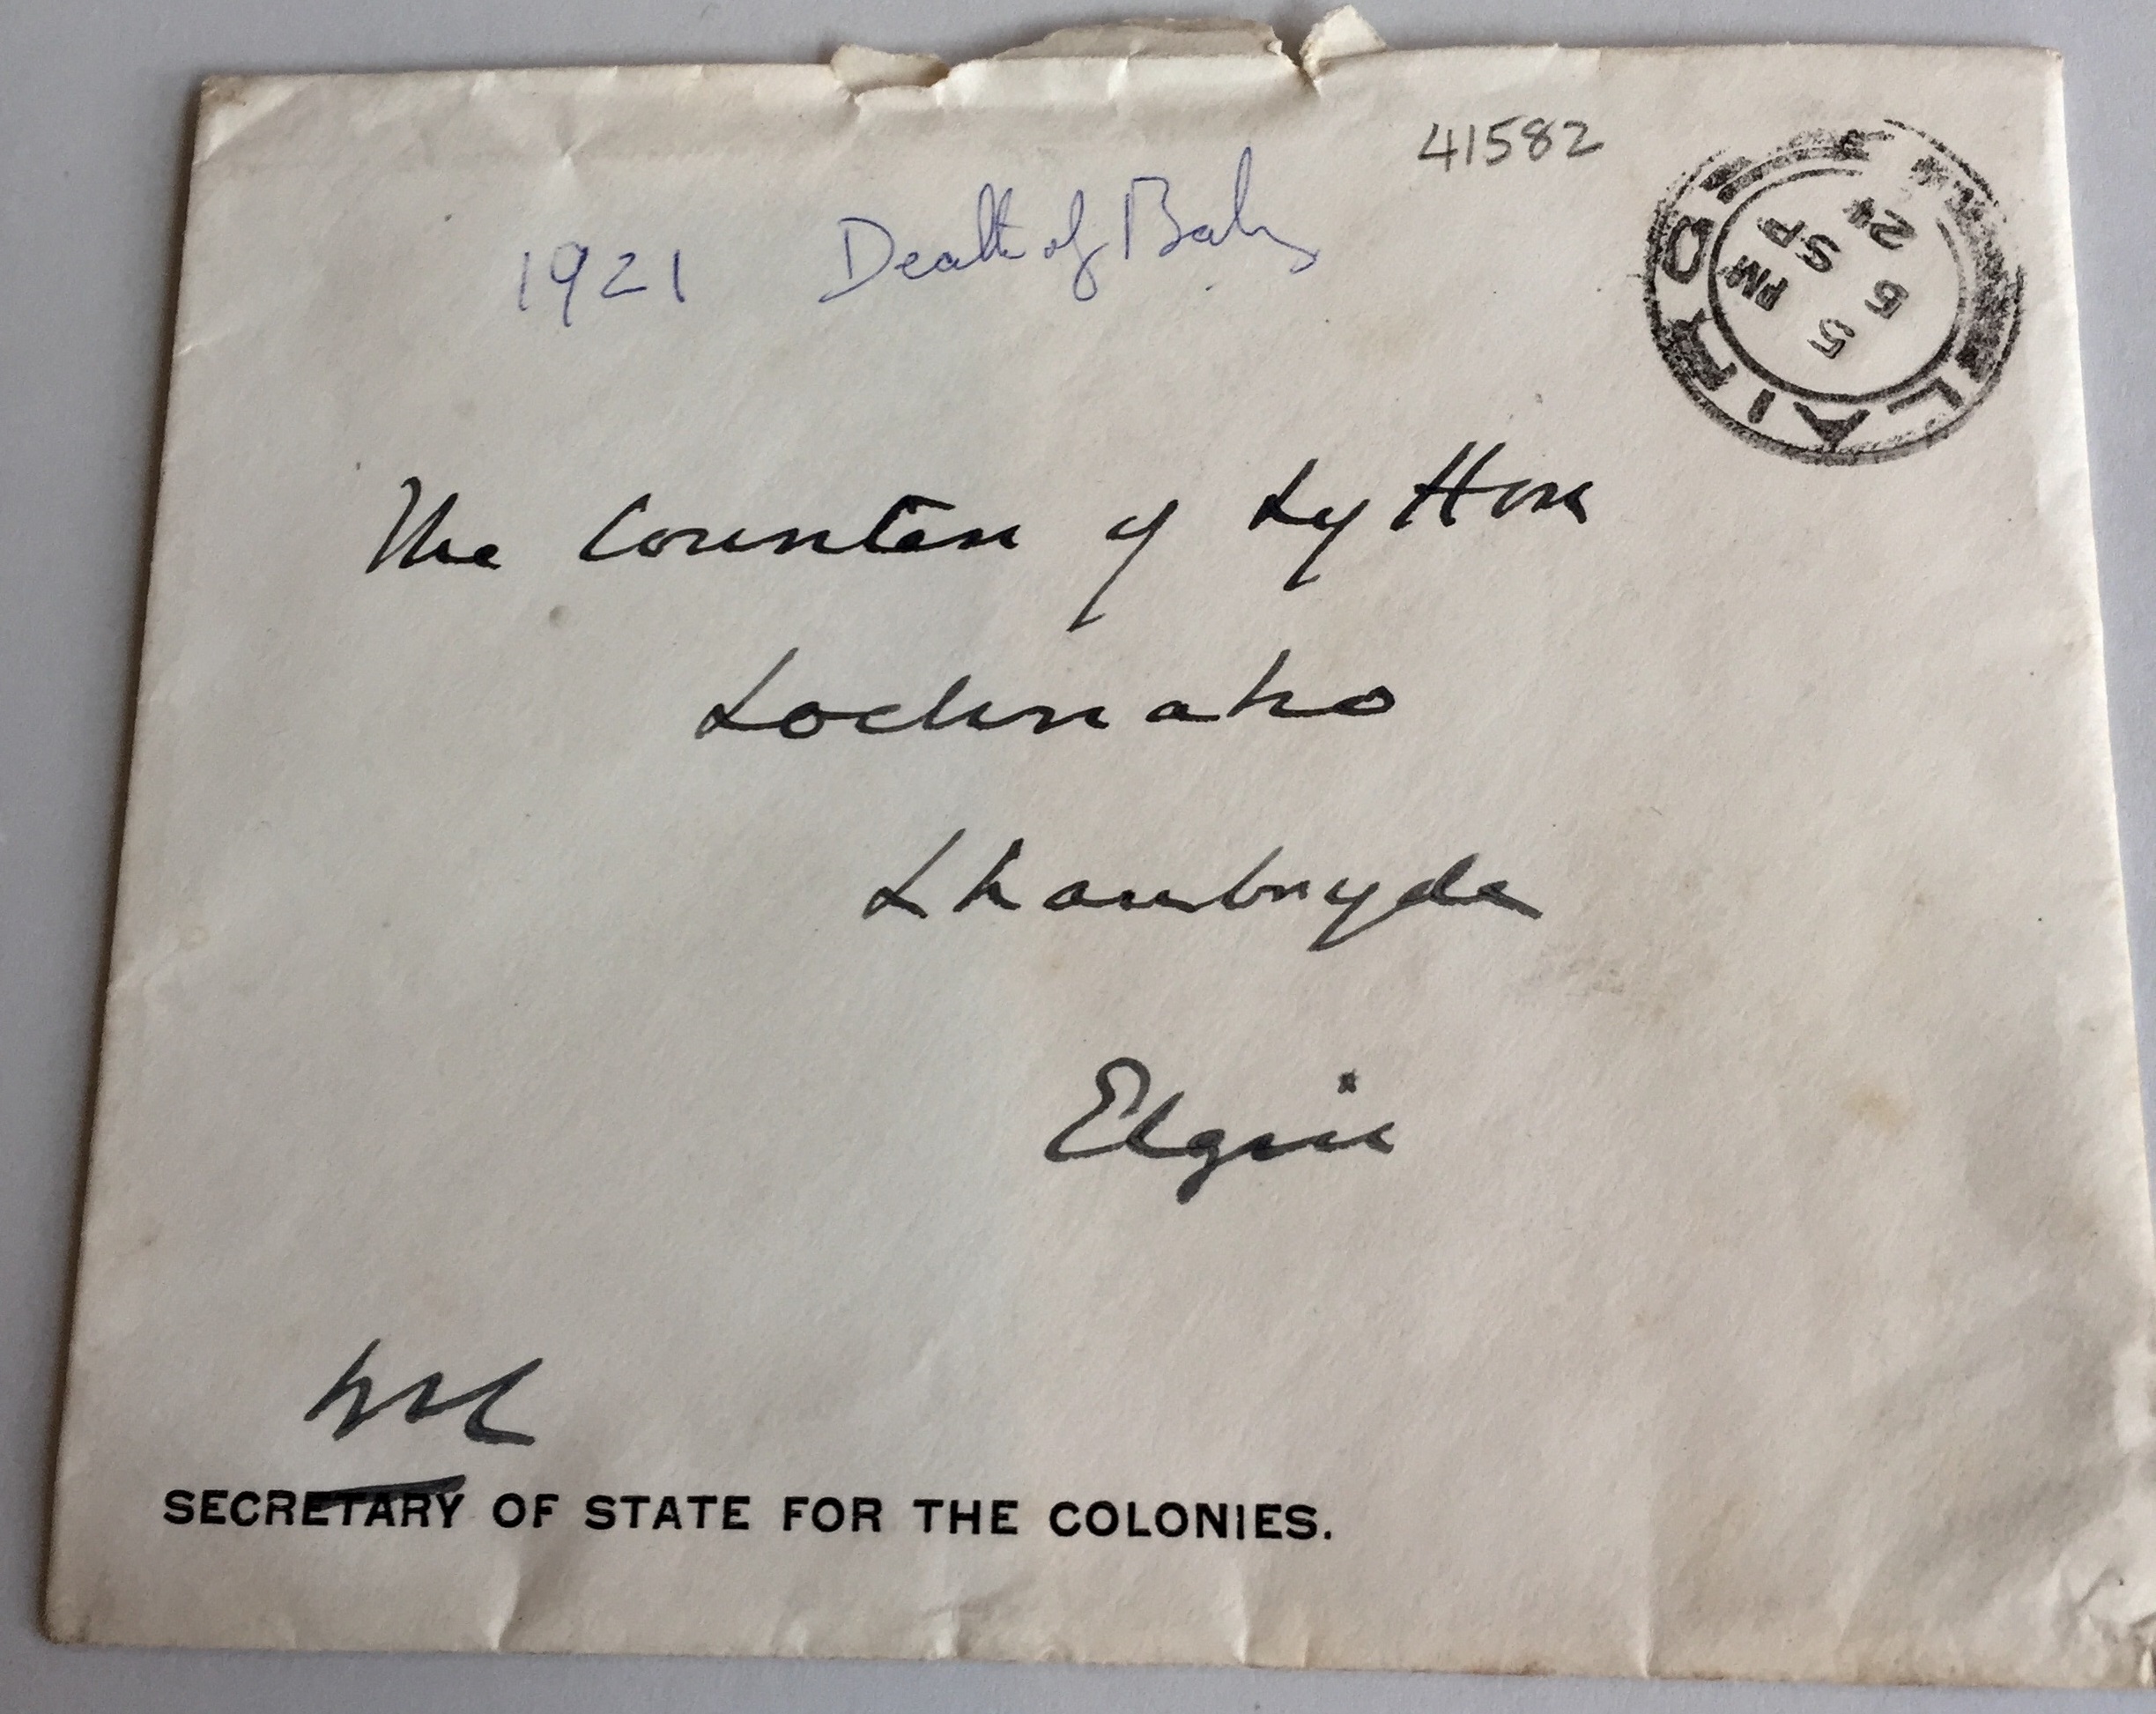 41582
1921 Death of Baby
LAIRG
5 5 PM
SP
The Countess of Lytton
Lochnabo
Lhanbryde
Elgin
WSC
SECRETARY OF STATE FOR THE COLONIES.